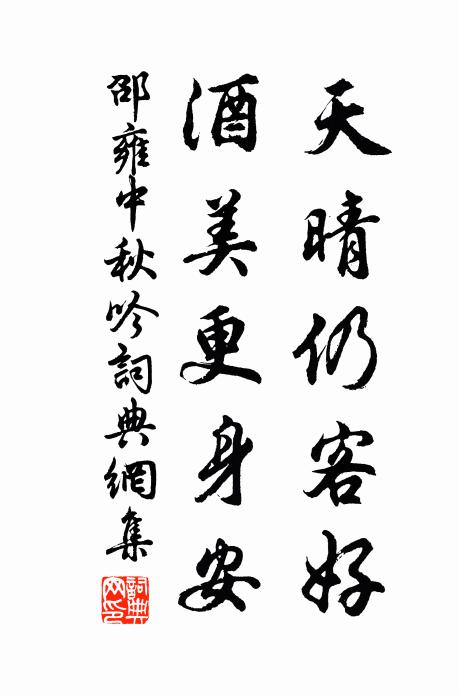 天晴仍客好
酒美更身安
邵雍中秋吟詞典網集
詞典網印